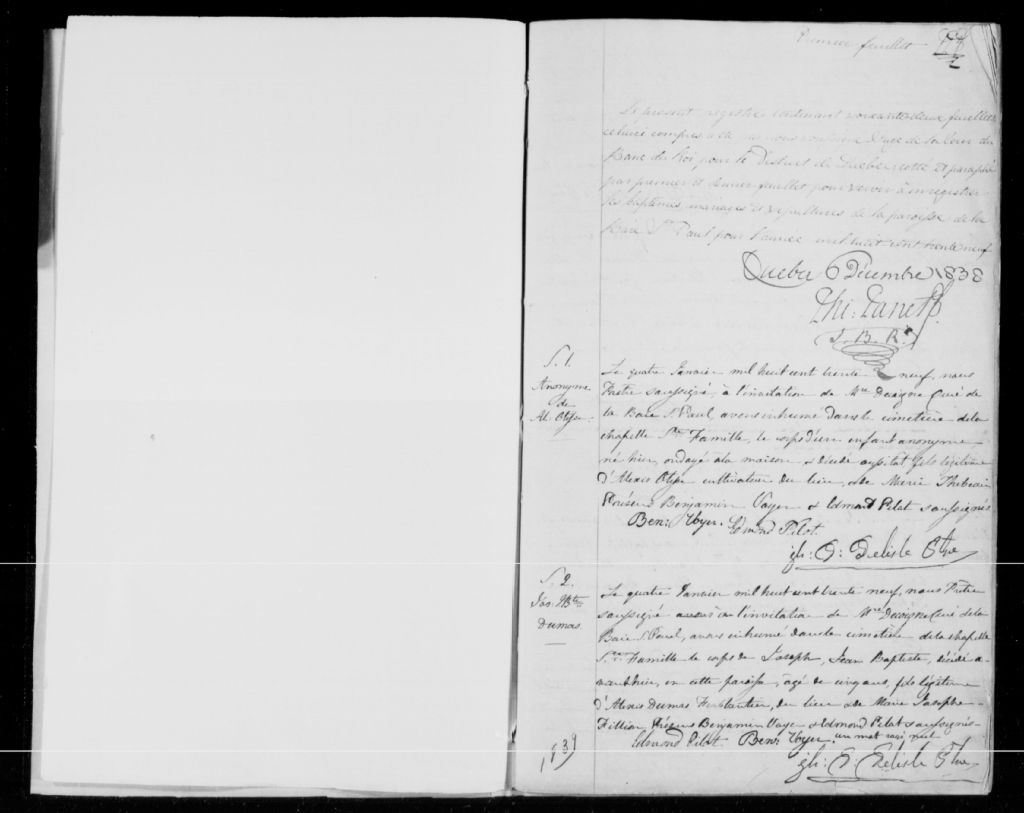 Premier feuillet
Le present registre contenant soixante deux feuillets
celui ci compris a été par nous soussigné Juge de la Cour du
Banc du Roi pour le District de Quebec cotté et paraphé
par premier et dernier feuillet, pour servir à enregistrer
les baptêmes mariages et sépultures de la paroisse de la
Baie St Paul pour l'année mil huit cent trente neuf
Quebec 6 Décembre 1838
J. B. R.
S. 1.
Anonyme
de
Al. Otis.
Le quatre Janvier mil huit cent trente neuf, nous
Prêtre soussigné, à l'invitation de Mre Decoigne Curé de
la Baie St Paul avons inhumé dans le cimetière de la
chapelle Ste Famille, le corps d'un enfant anonyme
né hier, ondoyé à la maison & décédé aussitôt, fils légitime
d'Alexis Otis cultivateur du lieu, & de Marie
Présens Benjamin Voyer & Edmond Pilot soussignés
Benj. Voyer. Edmond Pilot.
D: Delisle Ptre
S. 2.
Jos. J Bte
Dumas.
Le quatre Janvier mil huit cent trente neuf, nous Prêtre
soussigné à l'invitation de Mre Decoigne Curé de la
Baie St Paul, avons inhumé dans le cimetière de la chapelle
Ste Famille le corps de Joseph, Jean Baptiste, décédé a-
vant hier, en cette paroisse, âgé de cinq ans, fils légitime
d'Alexis Dumas du lieu & de Marie Josephe
Fillion, Présens Benjamin Voyer & Edmond Pilot soussignés
Edmond Pilot Benj: Voyer. un mot rayé nul
D: Delisle Ptre
1839